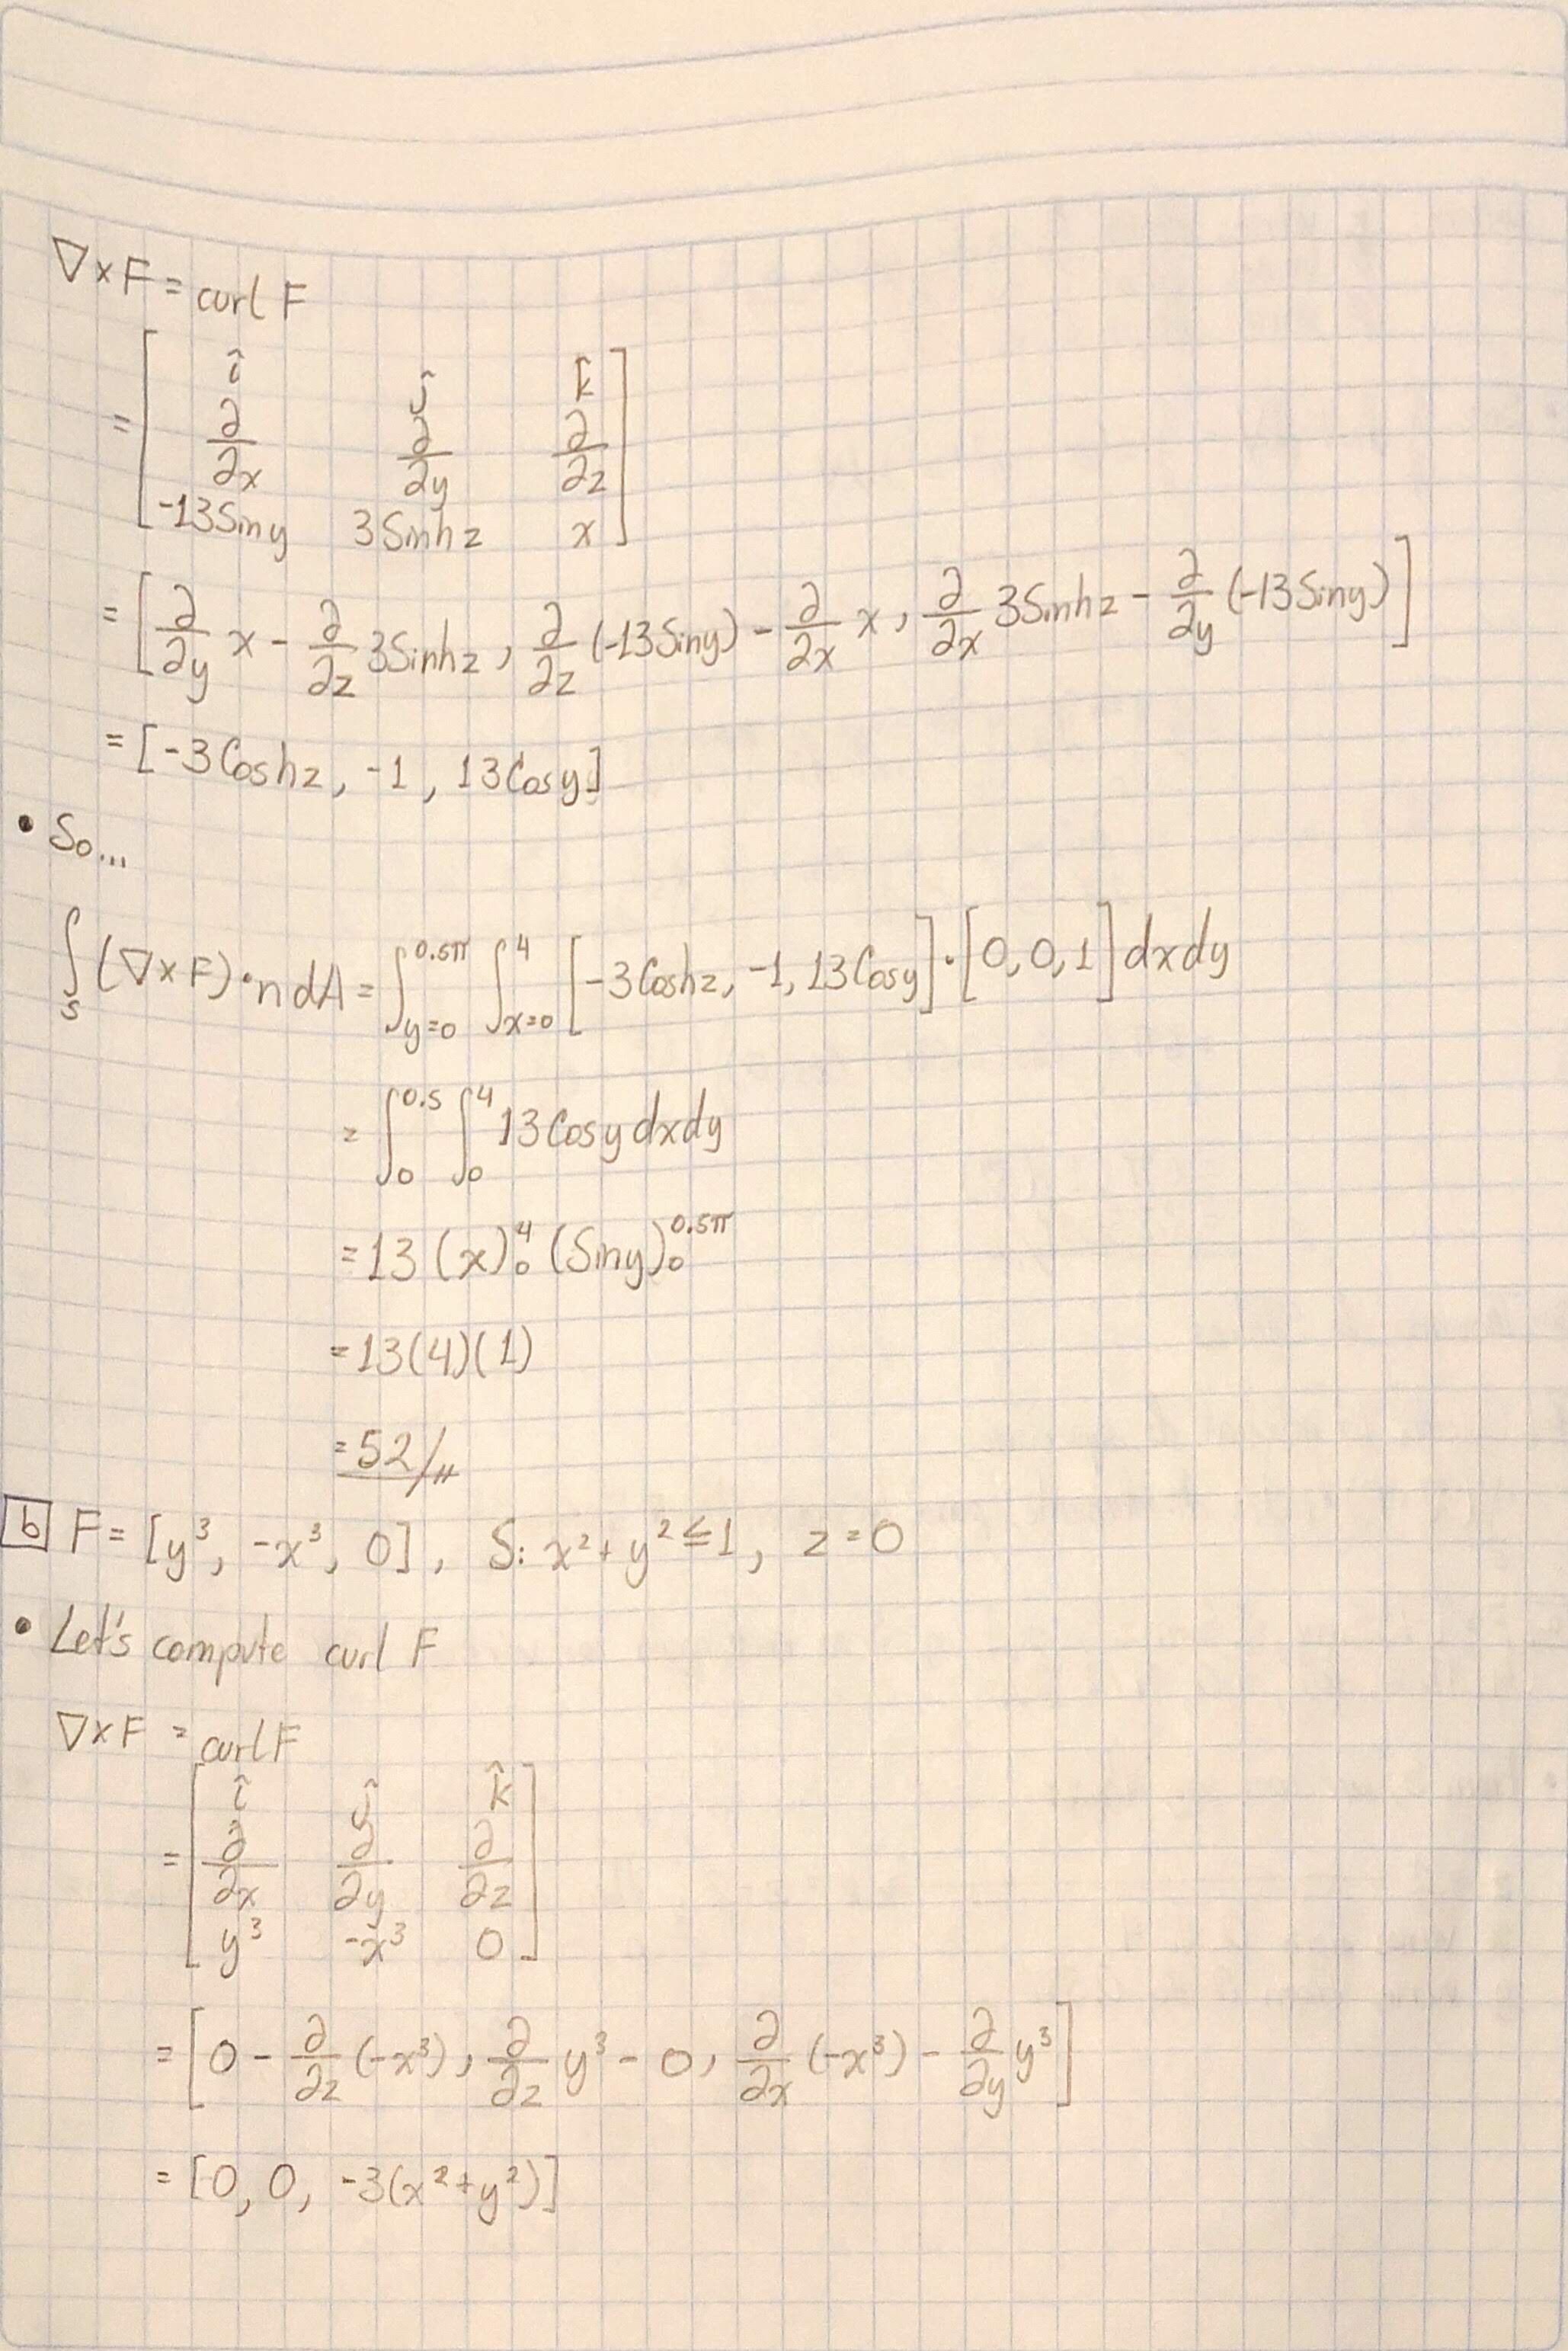 ∇×F = curl F
= [ î ĵ k̂
∂/∂x ∂/∂y ∂/∂z
-13Siny 3Sinhz x ]
= [ ∂/∂y x - ∂/∂z 3Sinhz , ∂/∂z (-13Siny) - ∂/∂x x , ∂/∂x 3Sinhz - ∂/∂y (-13Siny) ]
= [-3Coshz, -1, 13Cosy]
• So...
∫_S (∇×F)•n dA = ∫_{y=0}^{0.5π} ∫_{x=0}^{4} [-3Coshz, -1, 13Cosy]•[0,0,1] dxdy
= ∫_0^{0.5} ∫_0^4 13Cosy dxdy
= 13 (x)_0^4 (Siny)_0^{0.5π}
= 13(4)(1)
= 52//,,
b F = [y³, -x³, 0], S: x²+y² ≤ 1, z=0
• Let's compute curl F
∇×F = curl F
= [ î ĵ k̂
∂/∂x ∂/∂y ∂/∂z
y³ -x³ 0 ]
= [ 0 - ∂/∂z (-x³) , ∂/∂z y³ - 0 , ∂/∂x (-x³) - ∂/∂y y³ ]
= [0, 0, -3(x²+y²)]